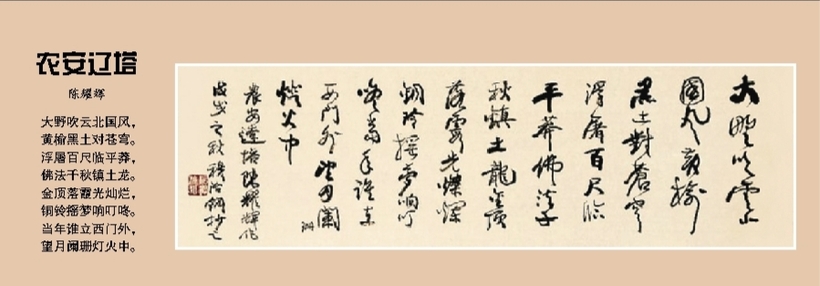 农安辽塔
陈耀辉
大野吹云北国风，
黄榆黑土对苍穹。
浮屠百尺临平莽，
佛法千秋镇土龙。
金顶落霞光灿烂，
铜铃摇梦响叮咚。
当年谁立西门外，
望月阑珊灯火中。
大野吹云北
国风黄榆
黑土對蒼穹
浮屠百尺临
平莽佛法千
秋镇土龍金頂
落霞光燦爛
铜铃摇梦响叮
咚当年谁立
西门外望月阑
珊
燈火中
農安遼塔陈耀輝作
戊戌之秋